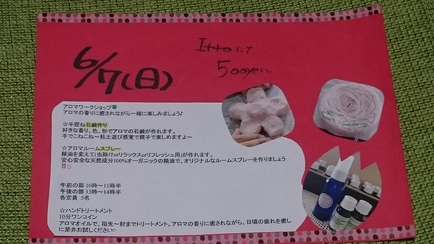 6/7(日)
500yen
アロマワークショップ等
アロマの香りに癒されながら一緒に楽しみましょう♪
☆手捏ね石鹸作り
好きな香り、色、形でアロマの石鹸が作れます。
手でこねこね〜粘土遊び感覚で親子で楽しめますよ〜
☆アロマルームスプレー
精油を変えて(虫除けorリラックスorリフレッシュ用)が作れます。
安心安全な天然成分100%オーガニックの精油で、オリジナルなルームスプレーを作りましょう
!!
午前の部 10時〜11時半
午後の部 13時〜14時半
各定員 3名
☆ハンドトリートメント
10分ワンコイン
アロマオイルで、指先〜肘までトリートメント。アロマの香りに癒されながら、日頃の疲れを癒し
に是非お試しください♡